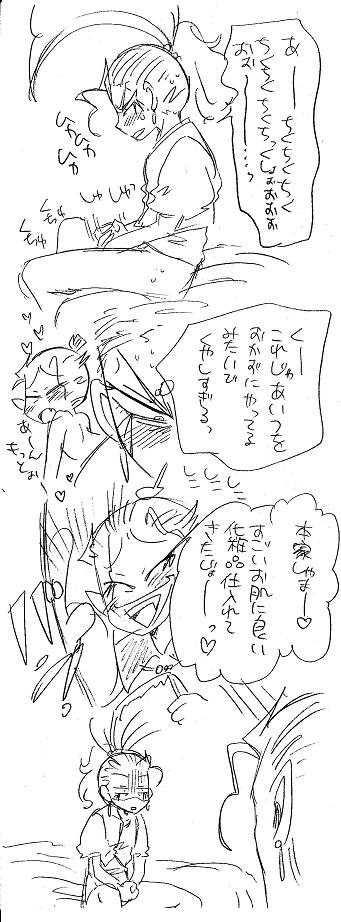 あーー
ちくちくちく
ちくちくちっく
しょおおおお
おお‥‥‥っ
ひゃ
ひゃ
ひゃ
しゅ しゅっ
くちゅ
くちゅ
くー
これじゃあいつを
おかずにやってる
みたいで
くやしすぎるっ
あーん
もっとぉ
本家しゃまー♡
すごいお肌に良い
化粧品仕入れて
きたじょーっ♡